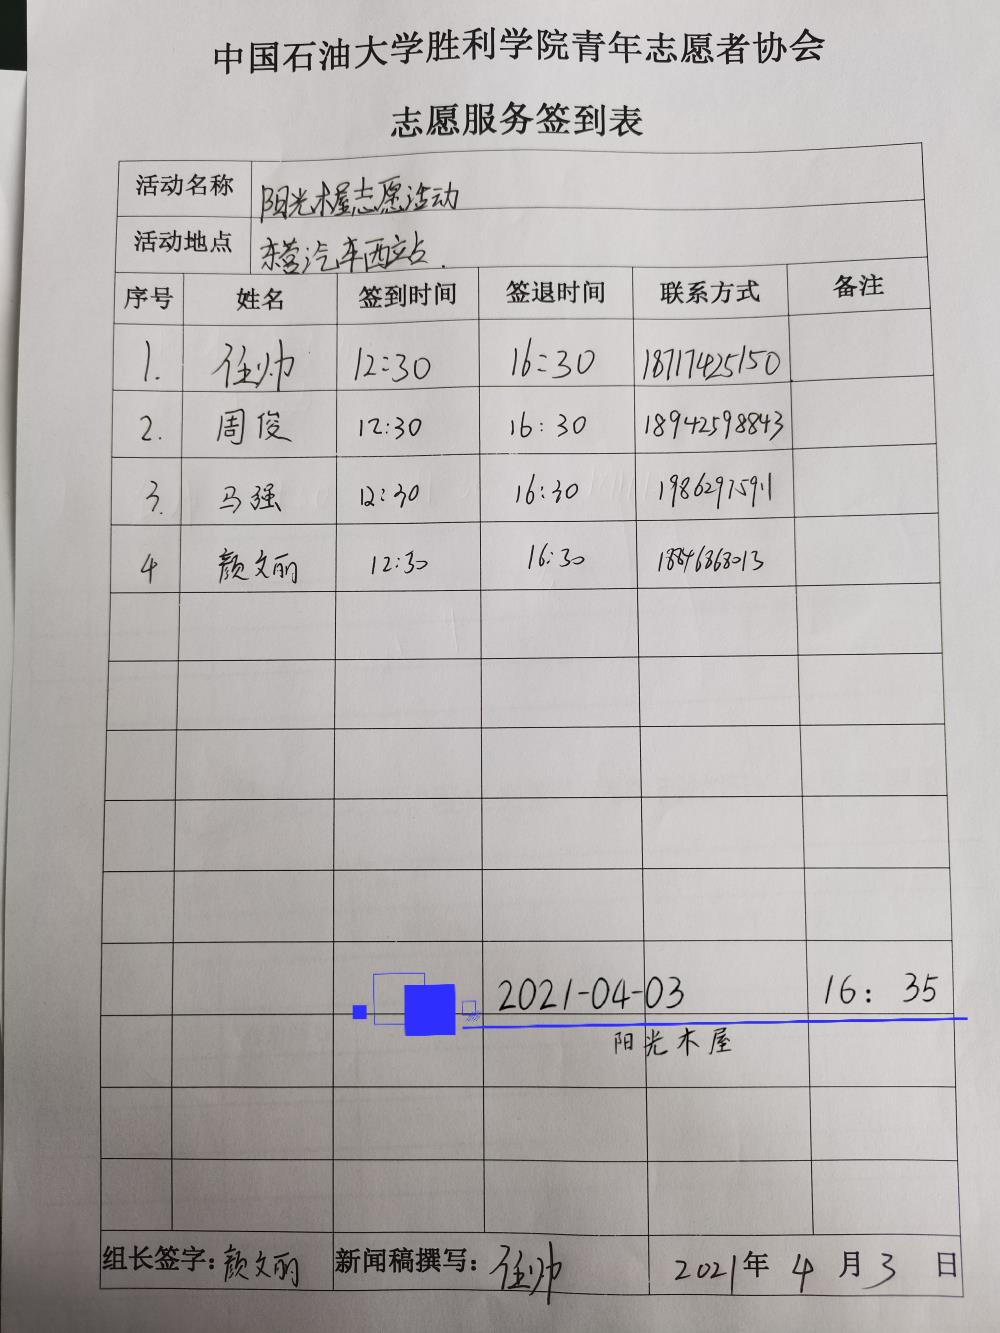 中国石油大学胜利学院青年志愿者协会
志愿服务签到表
活动名称 阳光木屋志愿活动
活动地点 东营汽车西站点.
序号 姓名 签到时间 签退时间 联系方式 备注
1. 任帅 12:30 16:30 18717425150
2. 周俊 12:30 16:30 18942598843
3. 马强 12:30 16:30
4 颜文丽 12:30 16:30 18846868013
2021-04-03 16: 35
阳光木屋
组长签字:颜文丽 新闻稿撰写:任帅 2021年 4 月 3 日